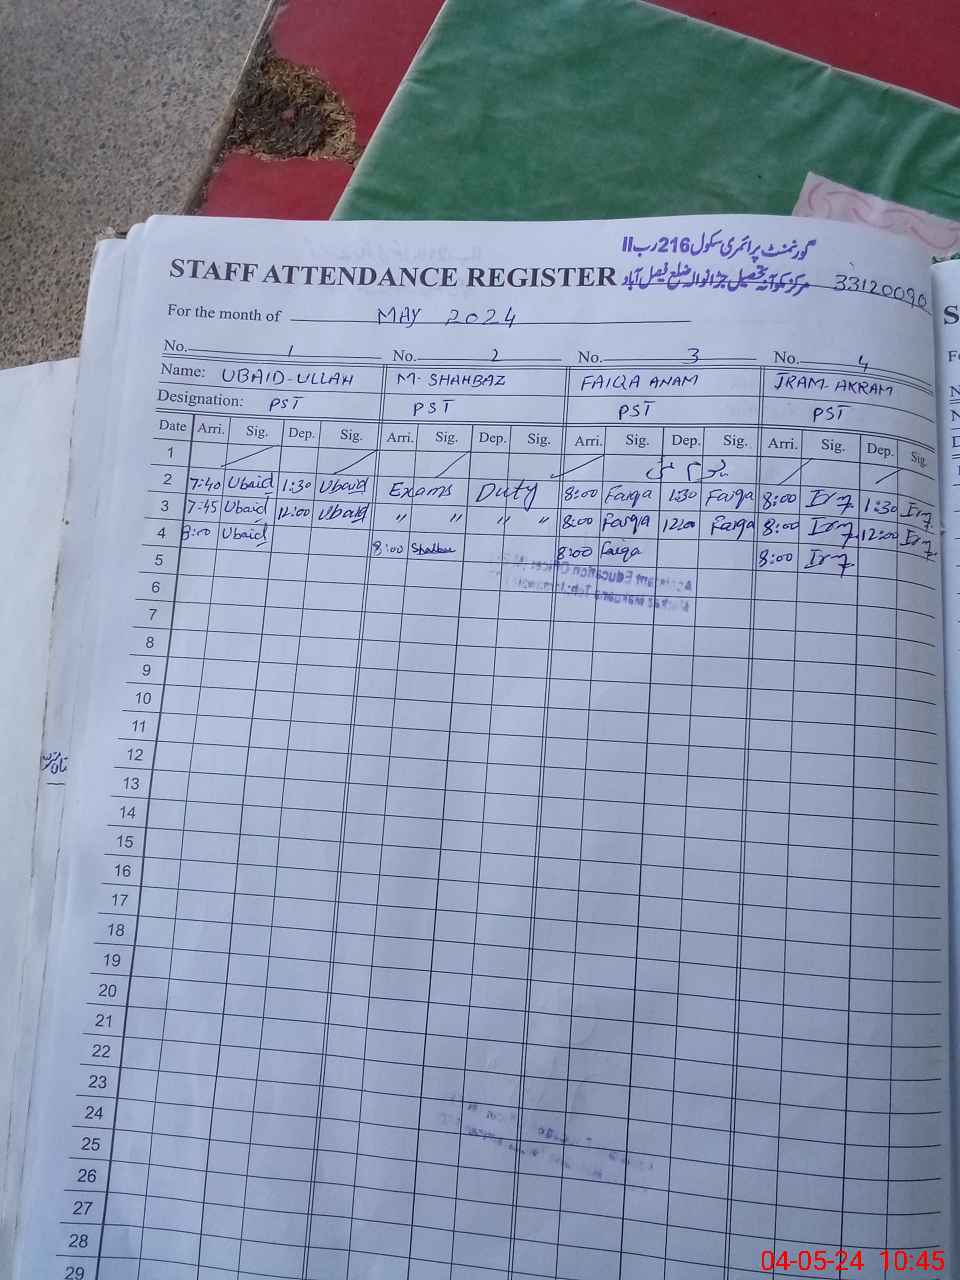 گورنمنٹ پرائمری سکول 216 رب II
STAFF ATTENDANCE REGISTER مرکز مکوآنہ تحصیل جڑانوالہ ضلع فیصل آباد 33120090
For the month of MAY 2024
No. 1 No. 2 No. 3 No. 4
Name: UBAID-ULLAH M-SHAHBAZ FAIQA ANAM IRAM-AKRAM
Designation: PST PST PST PST
Date Arri. Sig. Dep. Sig. Arri. Sig. Dep. Sig. Arri. Sig. Dep. Sig. Arri. Sig. Dep. Sig.
1
2 7:40 Ubaid 1:30 Ubaid Exams Duty 8:00 Faiqa 1:30 Faiqa 8:00 1:30
3 7:45 Ubaid 12:00 Ubaid " " " " 8:00 Faiqa 12:00 Faiqa 8:00 12:00
4 8:00 Ubaid 8:00 8:00 Faiqa 8:00
5
6
7
8
9
10
11
12
13
14
15
16
17
18
19
20
21
22
23
24
25
26
27
28
29
04-05-24 10:45